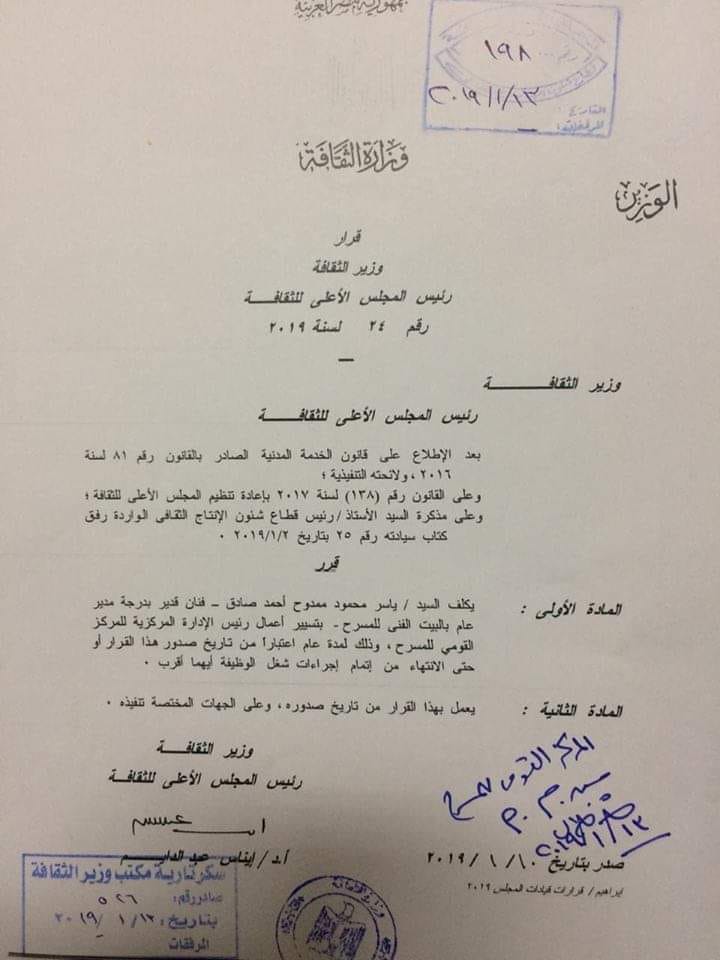 جمهورية مصر العربية
١٩٨
٢٠١٩/١/١٣
التاريخ
المرفقات:
وزارة الثقافة
الوزير
قرار
وزير الثقافة
رئيس المجلس الأعلى للثقافـــة
رقم ٢٤ لسنة ٢٠١٩
وزير الثقافـــــــة
رئيس المجلس الأعلى للثقافـــة
بعد الإطلاع على قانون الخدمة المدنية الصادر بالقانون رقم ٨١ لسنة
٢٠١٦ ، ولائحته التنفيذية ؛
وعلى القانون رقم (١٣٨) لسنة ٢٠١٧ بإعادة تنظيم المجلس الأعلى للثقافة ؛
وعلى مذكرة السيد الأستاذ/ رئيس قطاع شئون الإنتاج الثقافى الواردة رفق
كتاب سيادته رقم ٢٥ بتاريخ ٢٠١٩/١/٢ ٠
قرر
المادة الأولى :
يكلف السيد / ياسر محمود ممدوح أحمد صادق – فنان قدير بدرجة مدير
عام بالبيت الفنى للمسرح - بتسيير أعمال رئيس الإدارة المركزية للمركز
القومي للمسرح ، وذلك لمدة عام اعتباراً من تاريخ صدور هذا القرار أو
حتى الانتهاء من إتمام إجراءات شغل الوظيفة أيهما أقرب ٠
المادة الثانية :
يعمل بهذا القرار من تاريخ صدوره ، وعلى الجهات المختصة تنفيذه ٠
وزير الثقافـــة
رئيس المجلس الأعلى للثقافـــة
المركز القومى للمسرح
أ.د/ إيناس عبد الدايـــم
صدر بتاريخ ٢٠١٩/١/١٠
ابراهيم / قرارات قيادات المجلس ٢٠١٩
سكرتارية مكتب وزير الثقافة
صادر رقم: ٥٢٦
بتاريخ: ٢٠١٩/١/١٣
المرفقات
وزارة الثقافة